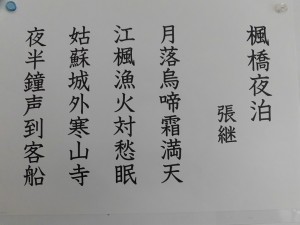 楓橋夜泊
張継
月落烏啼霜満天
江楓漁火対愁眠
姑蘇城外寒山寺
夜半鐘声到客船